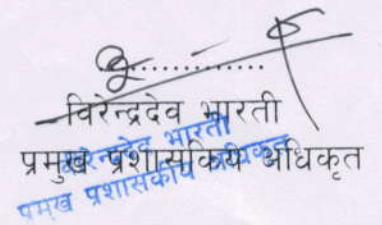 विरेन्द्रदेव भारती
प्रमुख प्रशासकिय अधिकृत
विरेन्द्रदेव भारती
प्रमुख प्रशासकीय अधिकृत